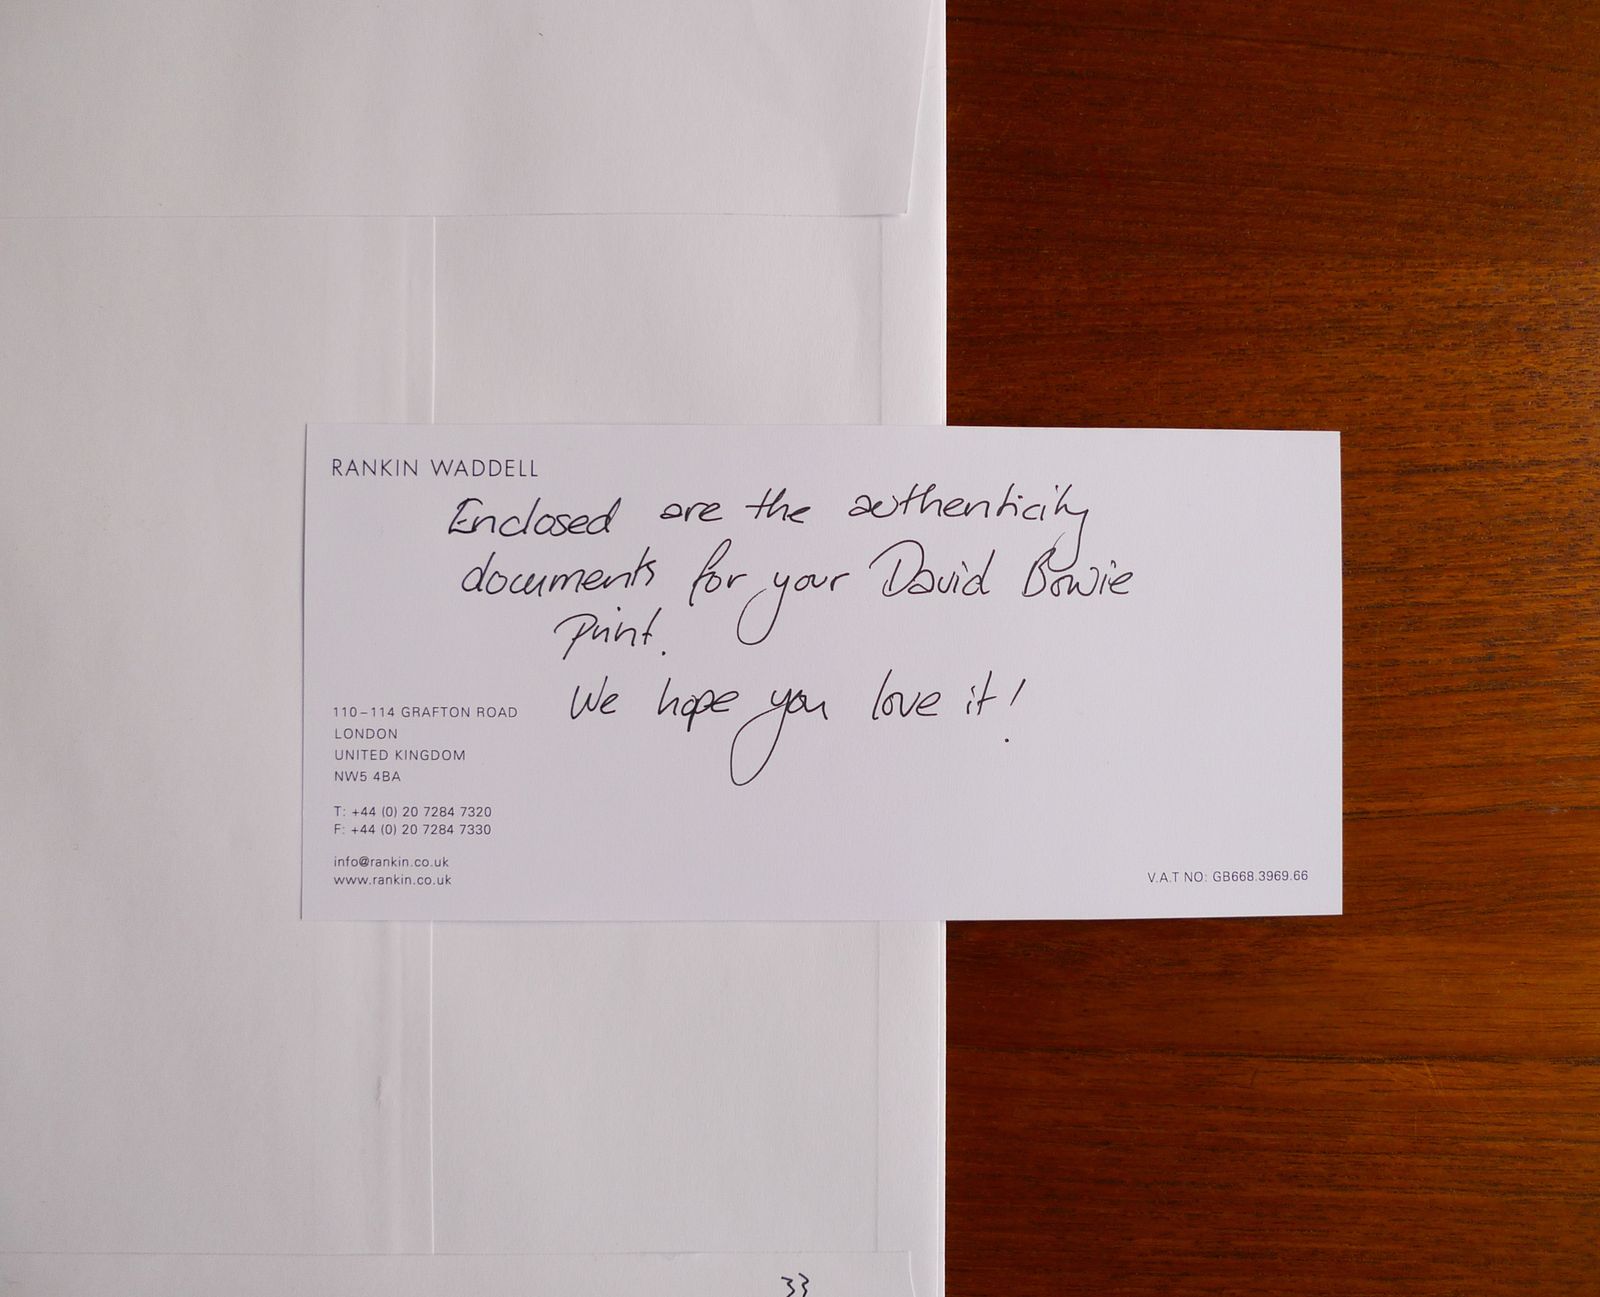 RANKIN WADDELL
Enclosed are the authenticity
documents for your David Bowie
Print.
We hope you love it!
110–114 GRAFTON ROAD
LONDON
UNITED KINGDOM
NW5 4BA
T: +44 (0) 20 7284 7320
F: +44 (0) 20 7284 7330
info@rankin.co.uk
www.rankin.co.uk
V.A.T NO: GB668.3969.66
33